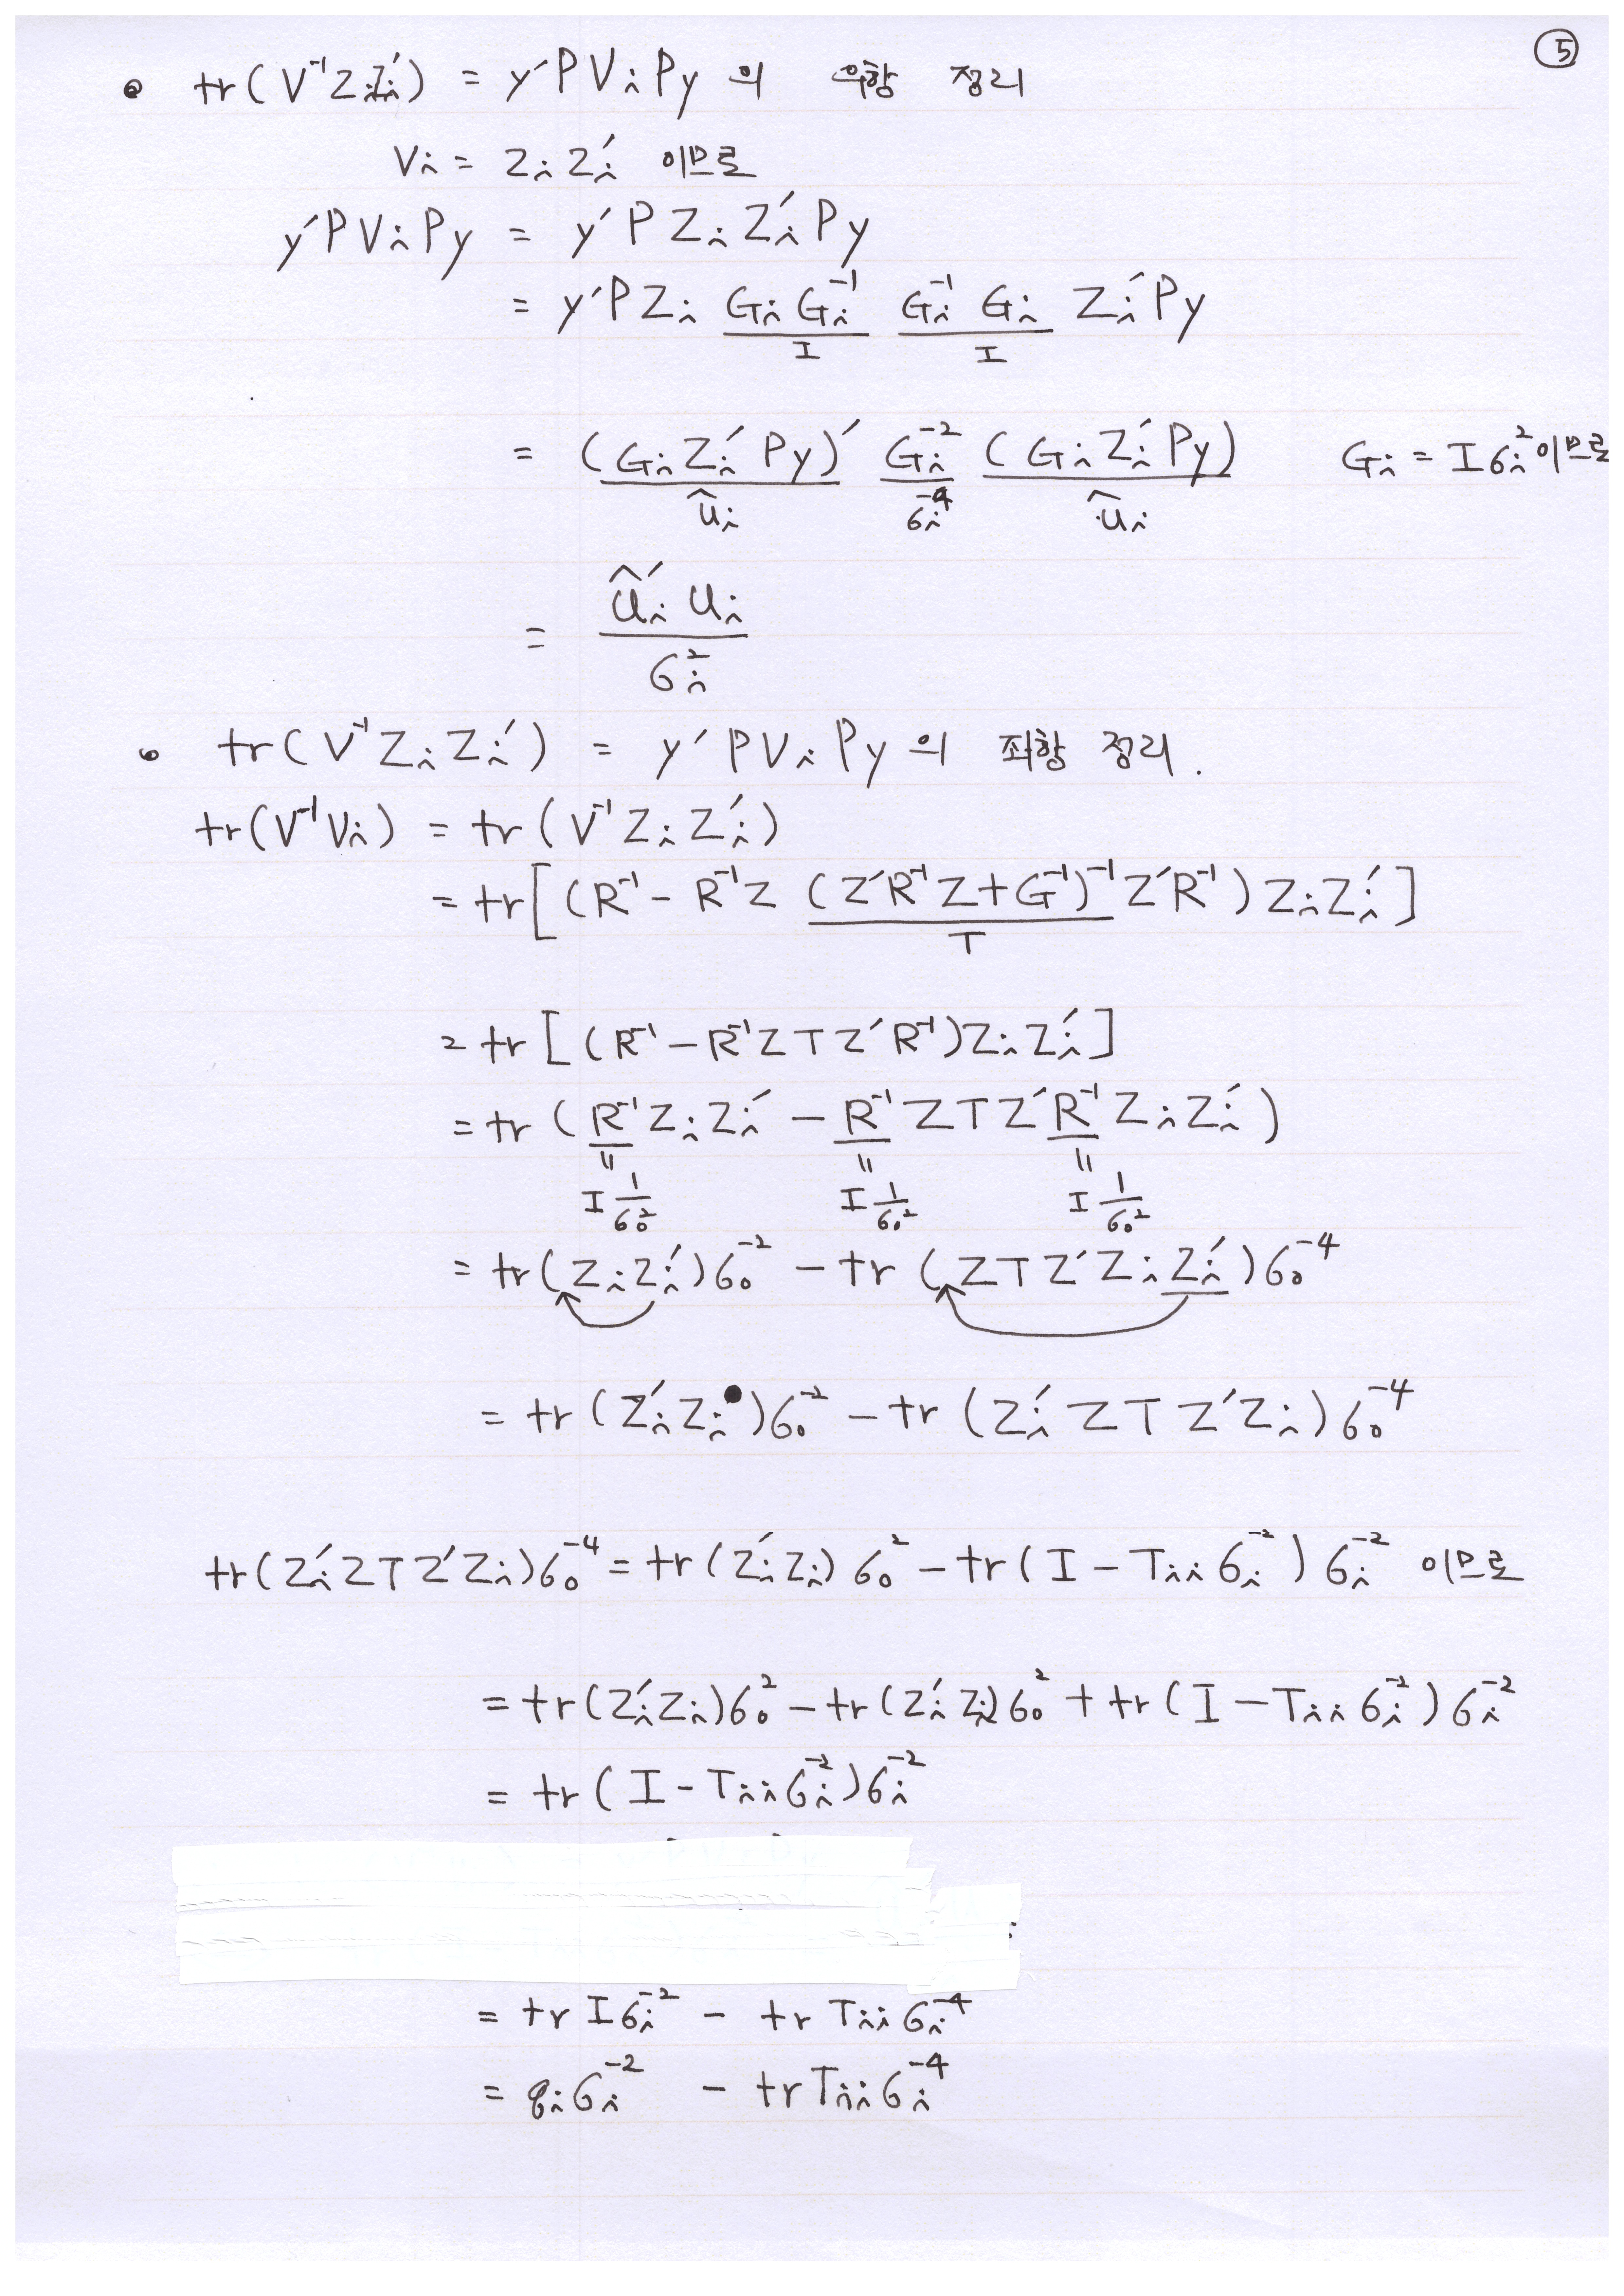 ⑤
• tr(V⁻¹ZᵢZᵢ′) = y′PVᵢPy 의 우항 정리
Vᵢ = ZᵢZᵢ′ 이므로
y′PVᵢPy = y′PZᵢZᵢ′Py
= y′PZᵢ GᵢGᵢ⁻¹ Gᵢ⁻¹Gᵢ Zᵢ′Py
I I
= (GᵢZᵢ′Py)′ Gᵢ⁻² (GᵢZᵢ′Py) Gᵢ = Iσᵢ²이므로
ûᵢ σᵢ⁻⁴ ûᵢ
= ûᵢ′uᵢ / σᵢ²
• tr(V⁻¹ZᵢZᵢ′) = y′PVᵢPy 의 좌항 정리.
tr(V⁻¹Vᵢ) = tr(V⁻¹ZᵢZᵢ′)
= tr[(R⁻¹ - R⁻¹Z(Z′R⁻¹Z+G⁻¹)⁻¹Z′R⁻¹)ZᵢZᵢ′]
T
= tr[(R⁻¹ - R⁻¹ZTZ′R⁻¹)ZᵢZᵢ′]
= tr(R⁻¹ZᵢZᵢ′ - R⁻¹ZTZ′R⁻¹ZᵢZᵢ′)
" " "
I 1/σ₀² I 1/σ₀² I 1/σ₀²
= tr(ZᵢZᵢ′)σ₀⁻² - tr(ZTZ′ZᵢZᵢ′)σ₀⁻⁴
= tr(Zᵢ′Zᵢ)σ₀⁻² - tr(Zᵢ′ZTZ′Zᵢ)σ₀⁻⁴
tr(Zᵢ′ZTZ′Zᵢ)σ₀⁻⁴ = tr(Zᵢ′Zᵢ)σ₀² - tr(I - Tᵢᵢσᵢ⁻²)σᵢ⁻² 이므로
= tr(Zᵢ′Zᵢ)σ₀² - tr(Zᵢ′Zᵢ)σ₀² + tr(I - Tᵢᵢσᵢ⁻²)σᵢ⁻²
= tr(I - Tᵢᵢσᵢ⁻²)σᵢ⁻²
= tr Iσᵢ⁻² - tr Tᵢᵢσᵢ⁻⁴
= qᵢσᵢ⁻² - tr Tᵢᵢσᵢ⁻⁴